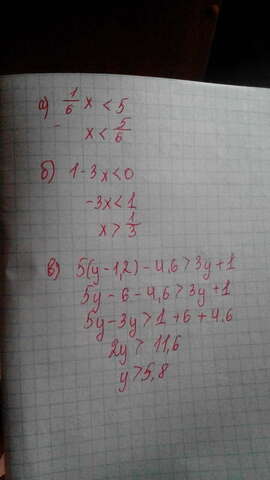 а) 1/6 x < 5
x < 5/6
б) 1 - 3x < 0
-3x < 1
x > 1/3
в) 5(y - 1,2) - 4,6 > 3y + 1
5y - 6 - 4,6 > 3y + 1
5y - 3y > 1 + 6 + 4,6
2y > 11,6
y > 5,8